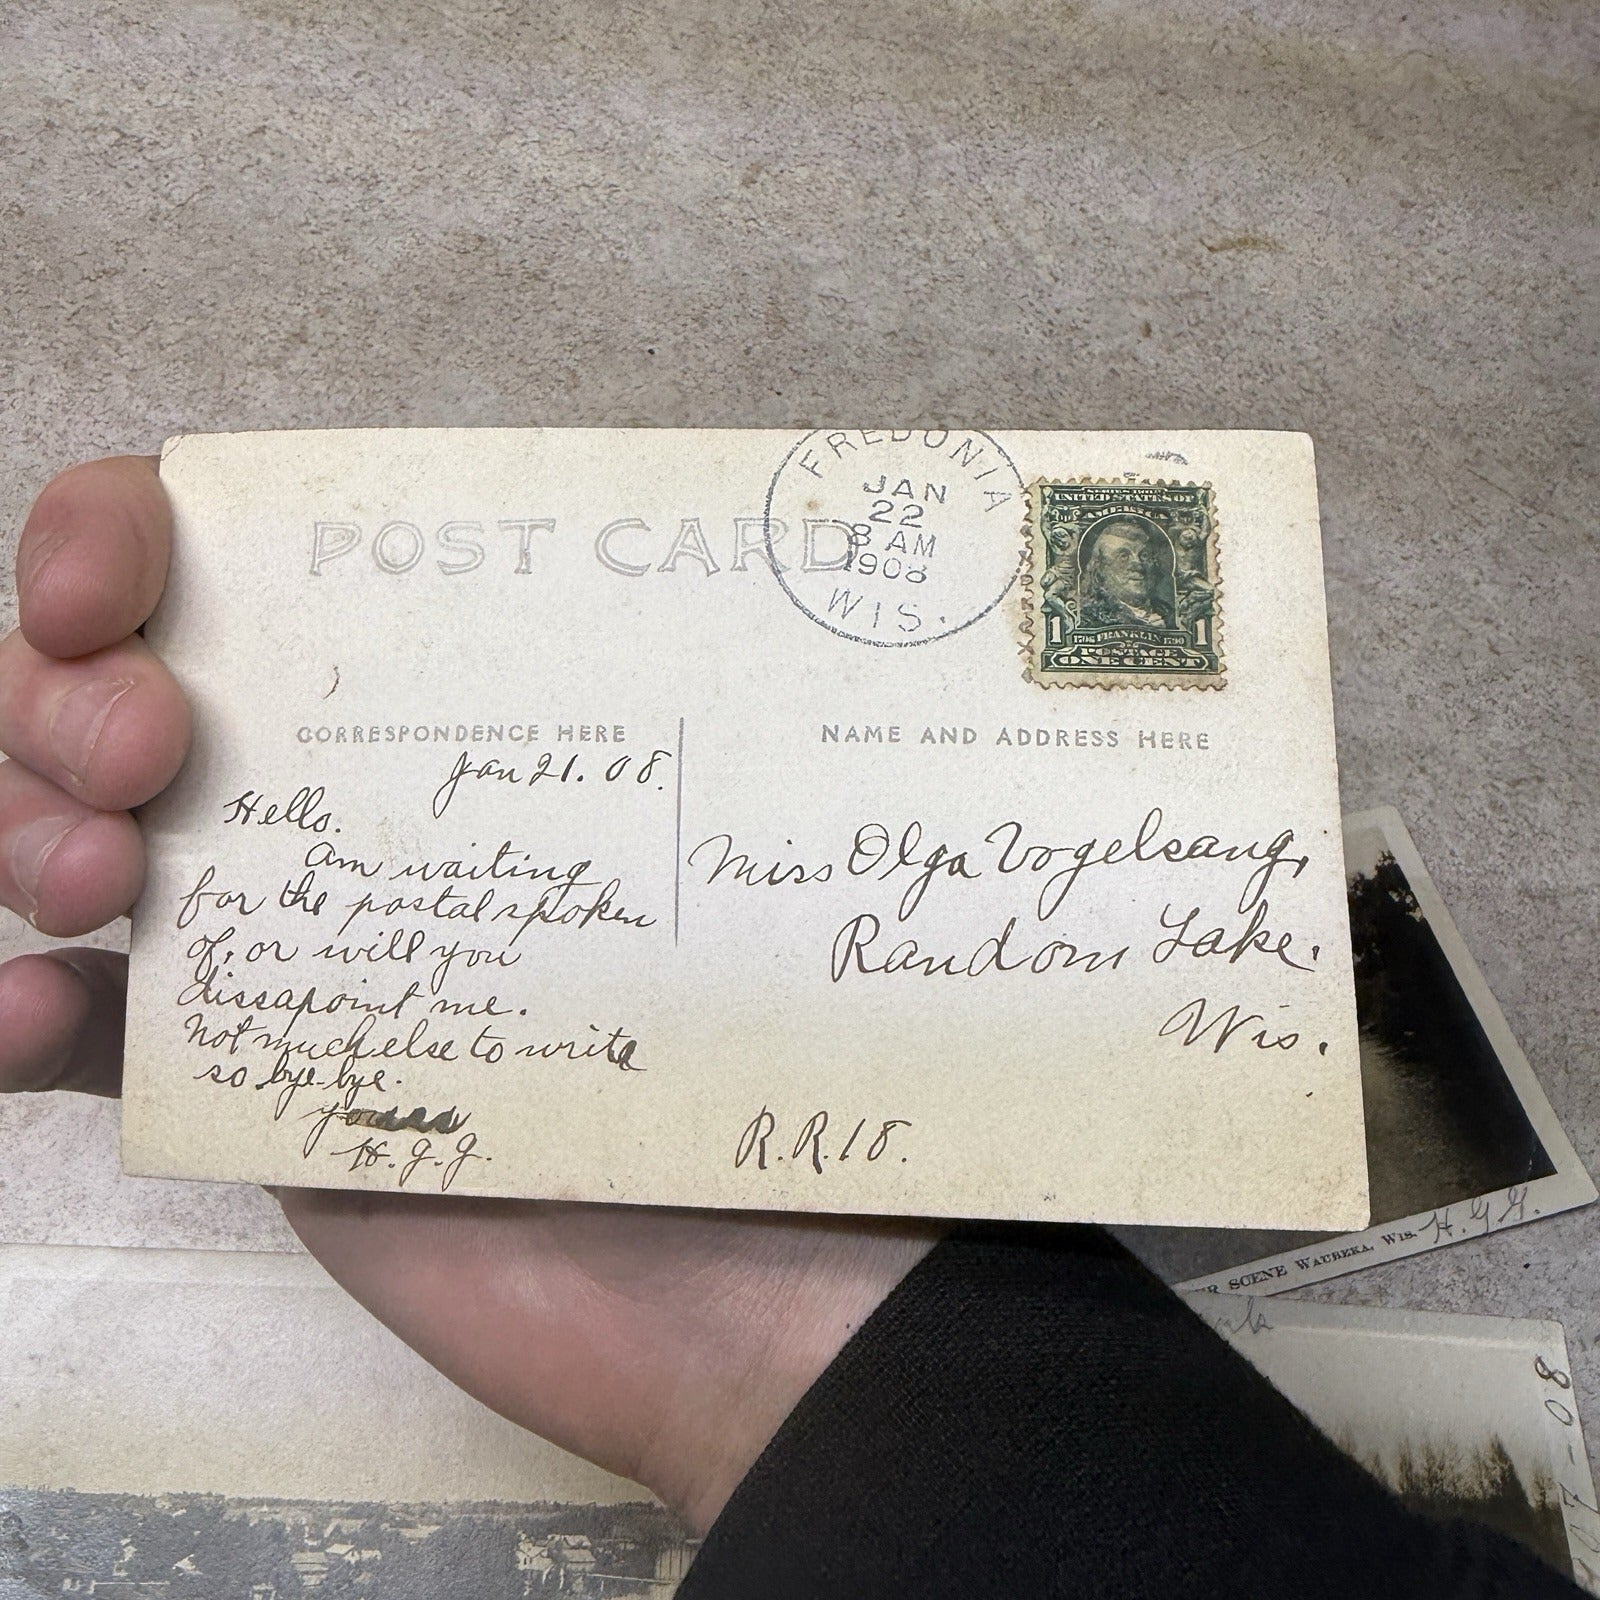 FREDONIA
JAN
22
8 AM
1908
WIS.
SERIES 1902
UNITED STATES OF
AMERICA
1706 FRANKLIN 1790
1 1
POSTAGE
ONE CENT
POST CARD
CORRESPONDENCE HERE
NAME AND ADDRESS HERE
Jan 21. 08.
Hello.
Am waiting
for the postal spoken
of, or will you
dissapoint me.
Not much else to write
so bye-bye.
yours
H. G. G.
Miss Olga Vogelsang,
Random Lake.
Wis.
R.R. 18.
SCENE WAUBEKA, WIS. H. G. G.
7-08